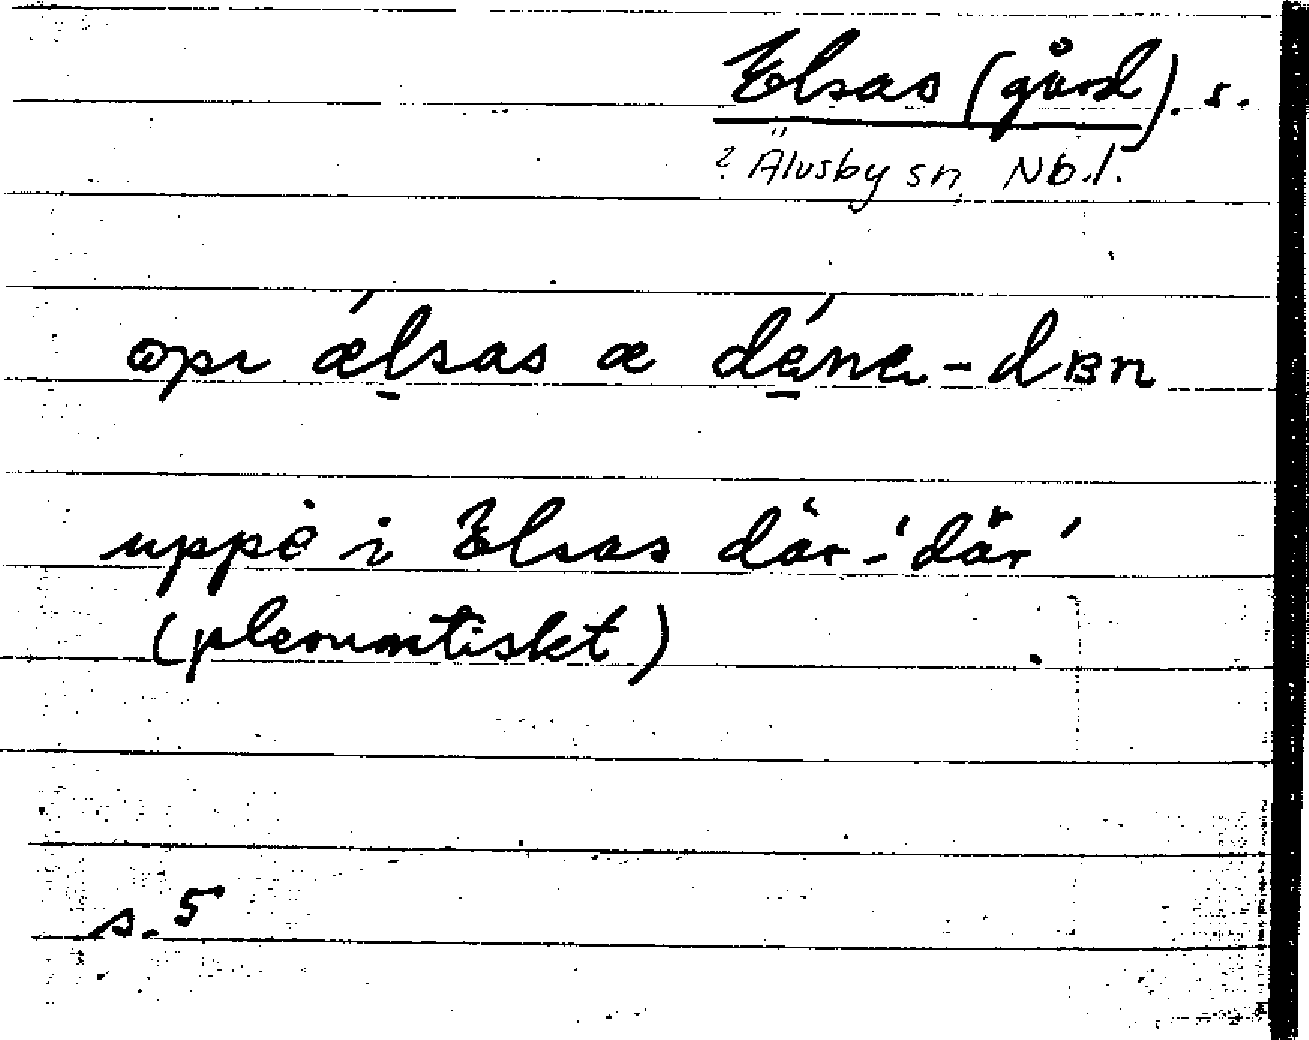 Elsas (gård). s.
? Älvsby sn, Nb.l.
opı ǽlsas æ déna-dʙn
uppe i Elsas där-'där'
(pleonastiskt)
s. 5